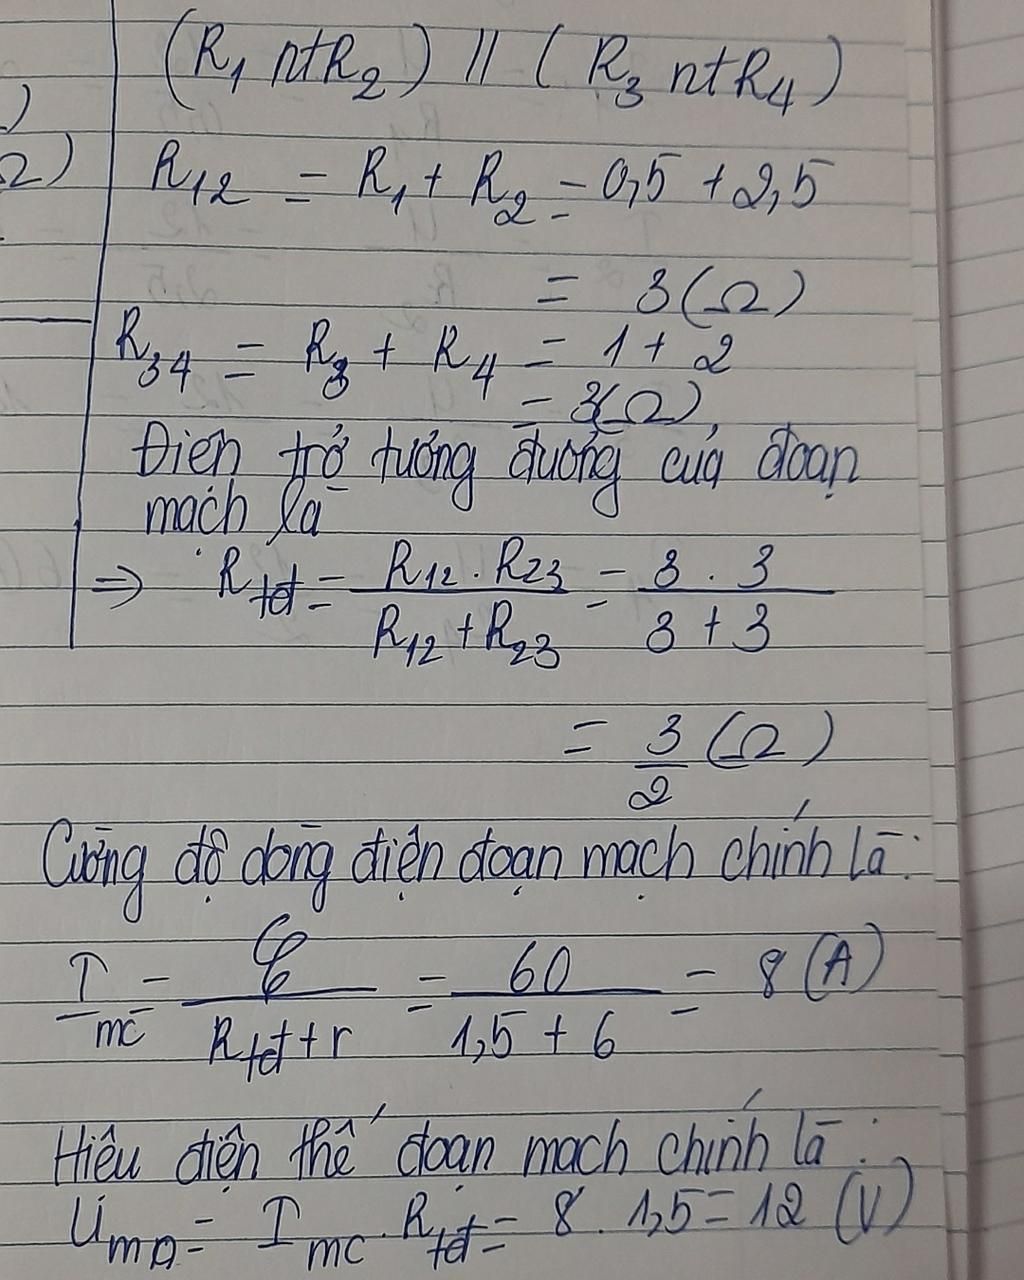 (R₁ nt R₂) // (R₃ nt R₄)
)
Ω) R₁₂ = R₁ + R₂ = 0,5 + 2,5
= 3 (Ω)
R₃₄ = R₃ + R₄ = 1 + 2
= 3(Ω)
Điện trở tương đương của đoạn
mạch là
=> R_tđ = (R₁₂ . R₂₃)/(R₁₂ + R₂₃) = (3 . 3)/(3 + 3)
= 3/2 (Ω)
Cường độ dòng điện đoạn mạch chính là:
I_mc = ℰ/(R_tđ + r) = 60/(1,5 + 6) = 8 (A)
Hiệu điện thế đoạn mạch chính là:
U_mc = I_mc . R_tđ = 8 . 1,5 = 12 (V)